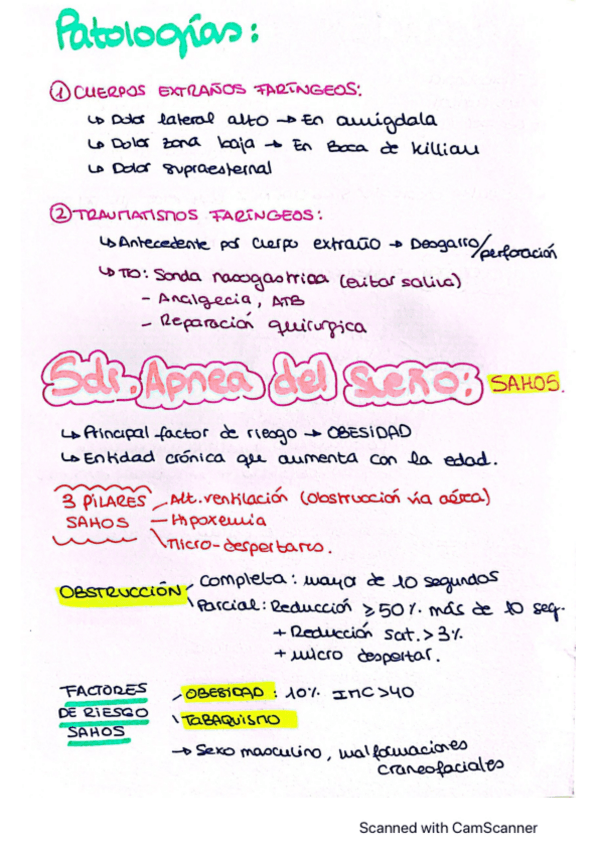 Patologías:
① CUERPOS EXTRAÑOS FARÍNGEOS:
↳ Dolor lateral alto → En amígdala
↳ Dolor zona baja → En Boca de Killian
↳ Dolor supraesternal
② TRAUMATISMOS FARÍNGEOS:
↳ Antecedente por cuerpo extraño → Desgarro/perforación
↳ TTO: Sonda nasogastrica (evitar saliva)
- Analgecia, ATB
- Reparación quirurgica
Sdr. Apnea del Sueño: SAHOS.
↳ Principal factor de riesgo → OBESIDAD
↳ Entidad crónica que aumenta con la edad.
3 PILARES SAHOS
Alt. ventilación (obstrucción vía aérea)
Hipoxemia
Micro-despertares.
OBSTRUCCIÓN
Completa: mayor de 10 segundos
Parcial: Reducción ≥50% más de 10 seg.
+ Reducción sat. >3%
+ micro despertar.
FACTORES DE RIESGO SAHOS
OBESIDAD: 10% IMC >40
TABAQUISMO
→ Sexo masculino, malformaciones
craneofaciales
Scanned with CamScanner